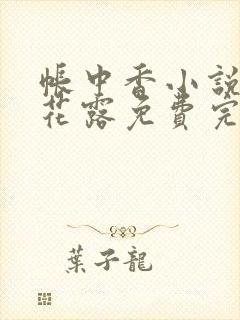 帳中香小說
花露免費完
葉子龍